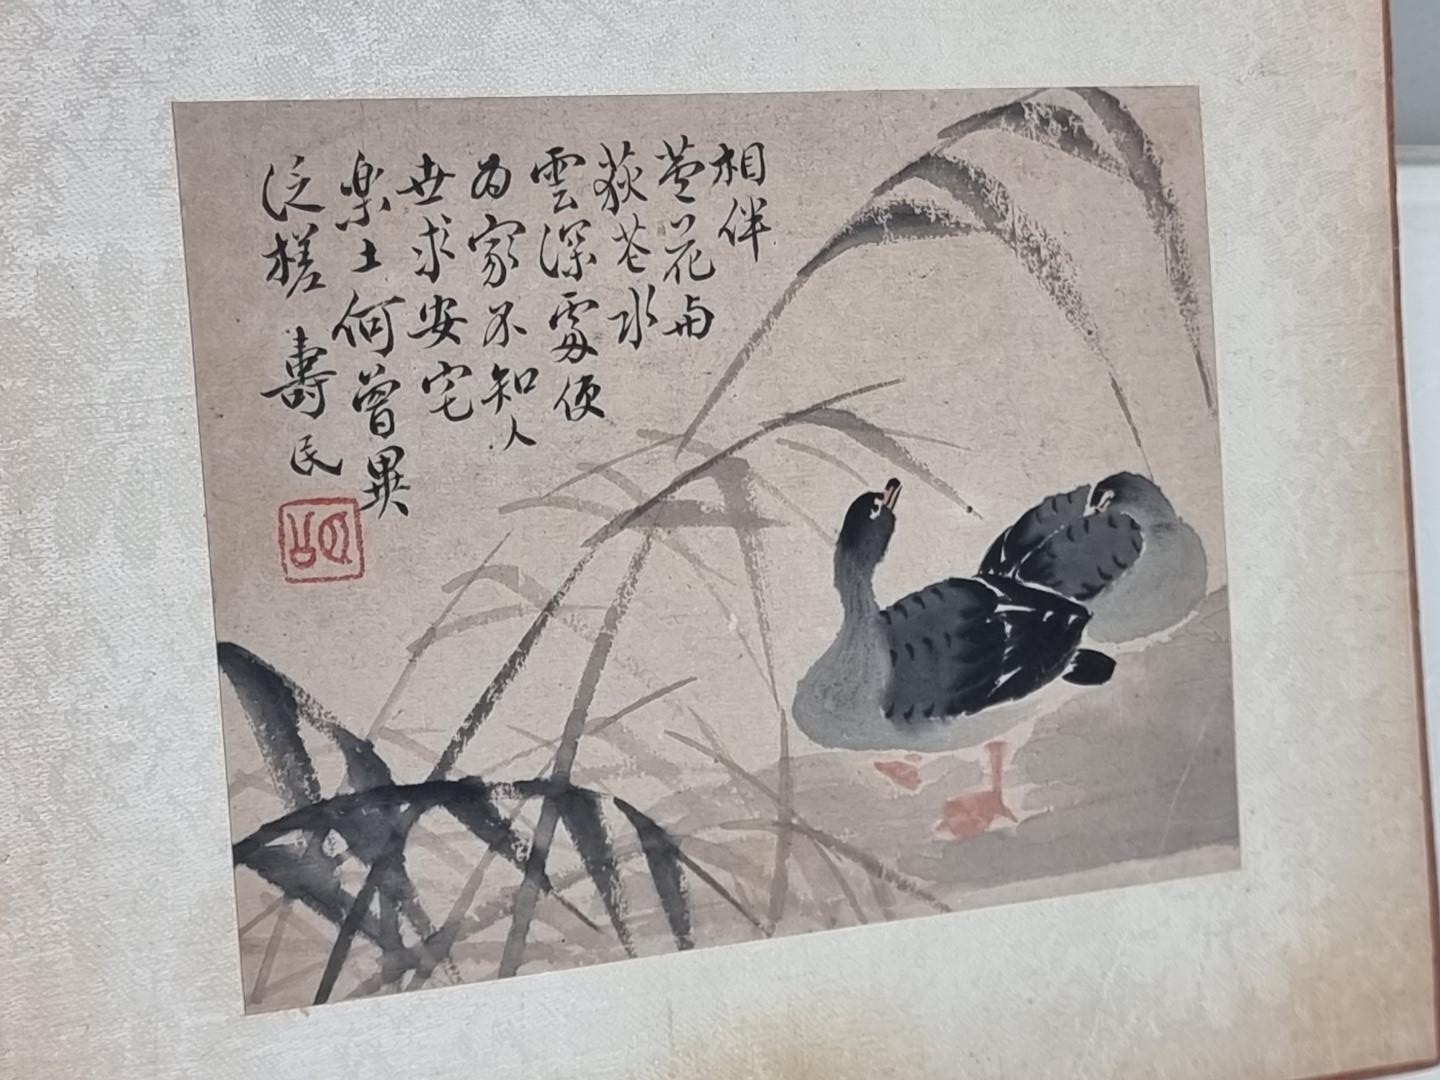 相伴
蘆花与
荻花水
雲深處便
为家不知人
世求安宅
楽土何曾異
泛槎 壽民